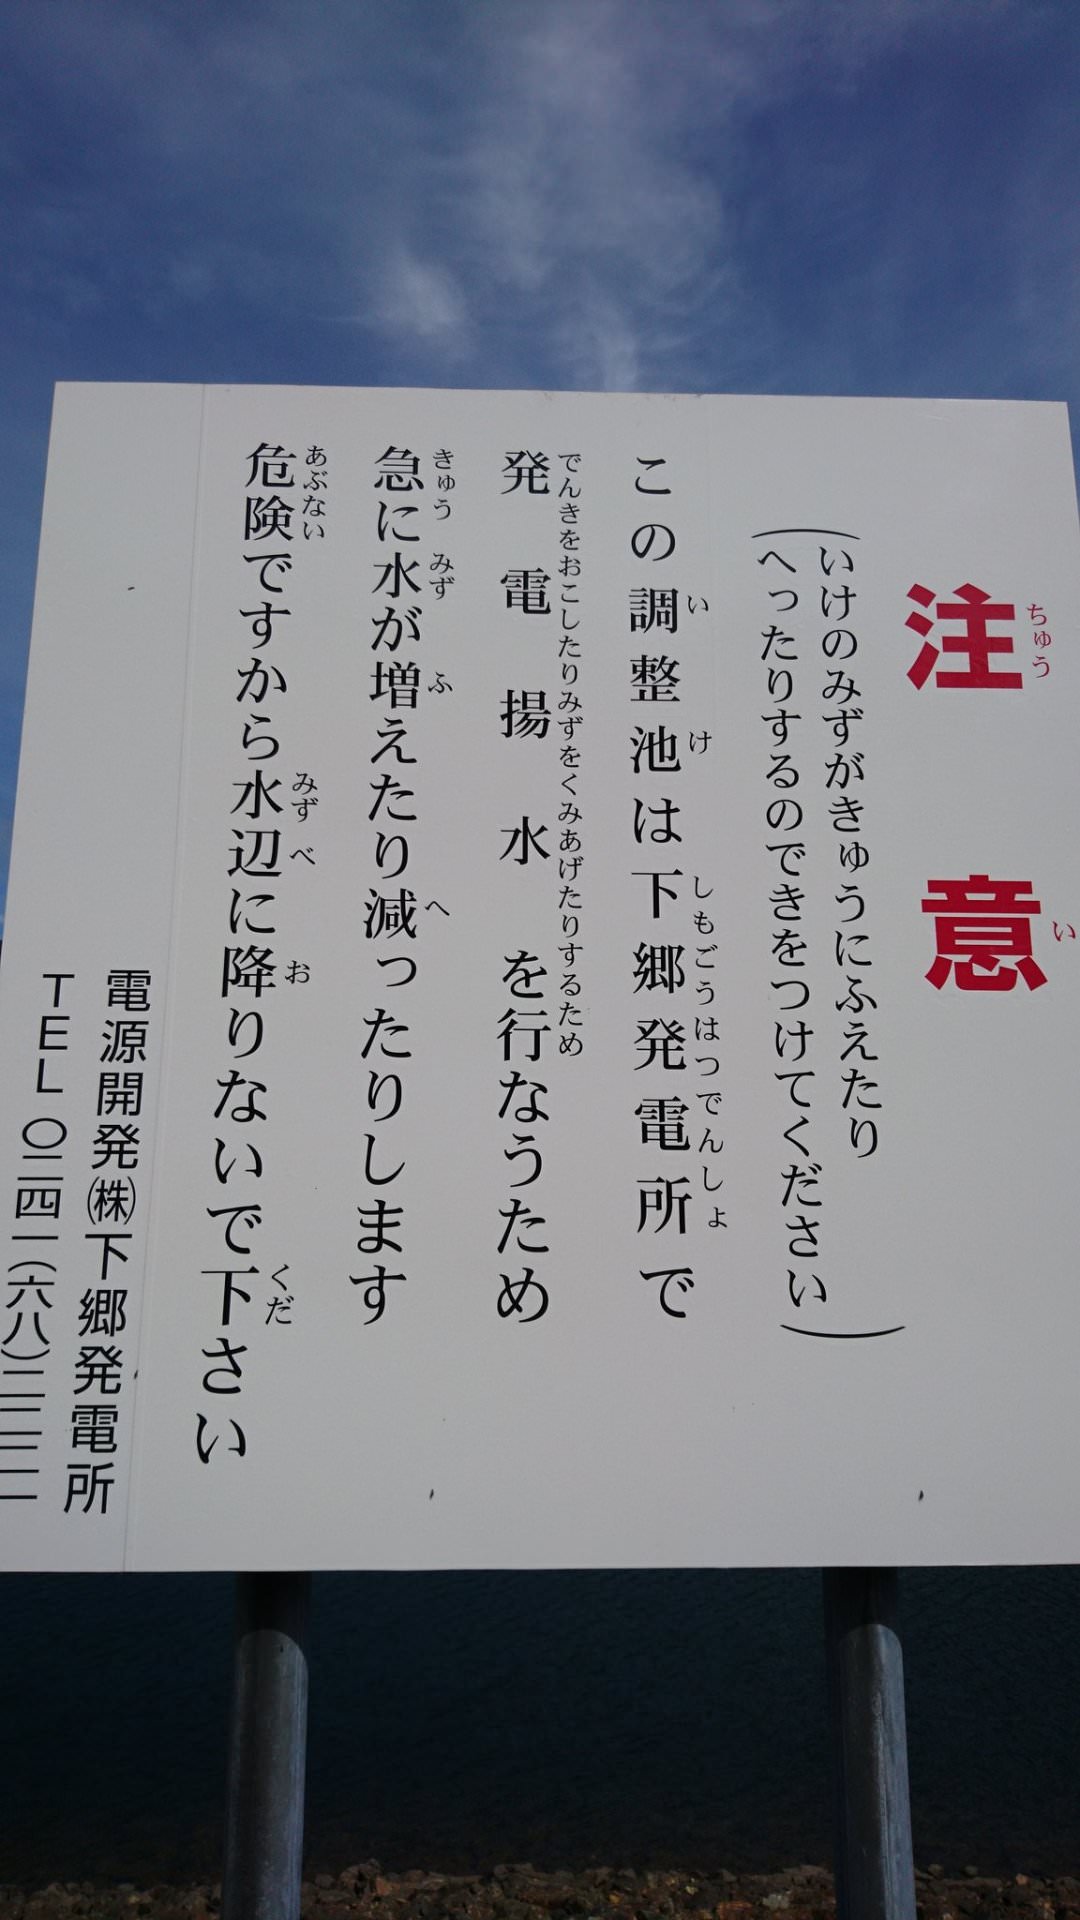 注意
ちゅうい
(いけのみずがきゅうにふえたり
へったりするのできをつけてください)
この調整池は下郷発電所で
いけ しもごうはつでんしょ
発電揚水を行なうため
でんきをおこしたりみずをくみあげたりするため
急に水が増えたり減ったりします
きゅう みず ふ へ
危険ですから水辺に降りないで下さい
あぶない みずべ お くだ
電源開発㈱下郷発電所
TEL〇二四一(六八)